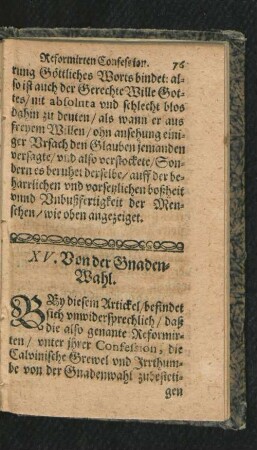 Reformirten Confession. 76
rung Göttliches Worts bindet: al-
so ist auch der Gerechte Wille Got-
tes/nit absoluta vnd schlecht blos
dahin zu deuten/ als wann er aus
freyem Willen/ ohn ansehung eini-
ger Vrsach den Glauben jemanden
versagte/ vnd also verstockete/ Son-
dern es beruhet derselbe/ auff der be-
harrlichen vnd vorseylichen boßheit
vnnd Vnbußfertigkeit der Men-
schen/ wie oben angezeiget.
XV. Von der Gnaden-
Wahl.
BEy diesem Artickel/ befindet
sich vnwidersprechlich/ daß
die also genante Reformir-
ten/ vnter jhrer Confession, die
Calvinische Grewel vnd Jrrthum-
be von der Gnadenwahl zubesteti-
gen